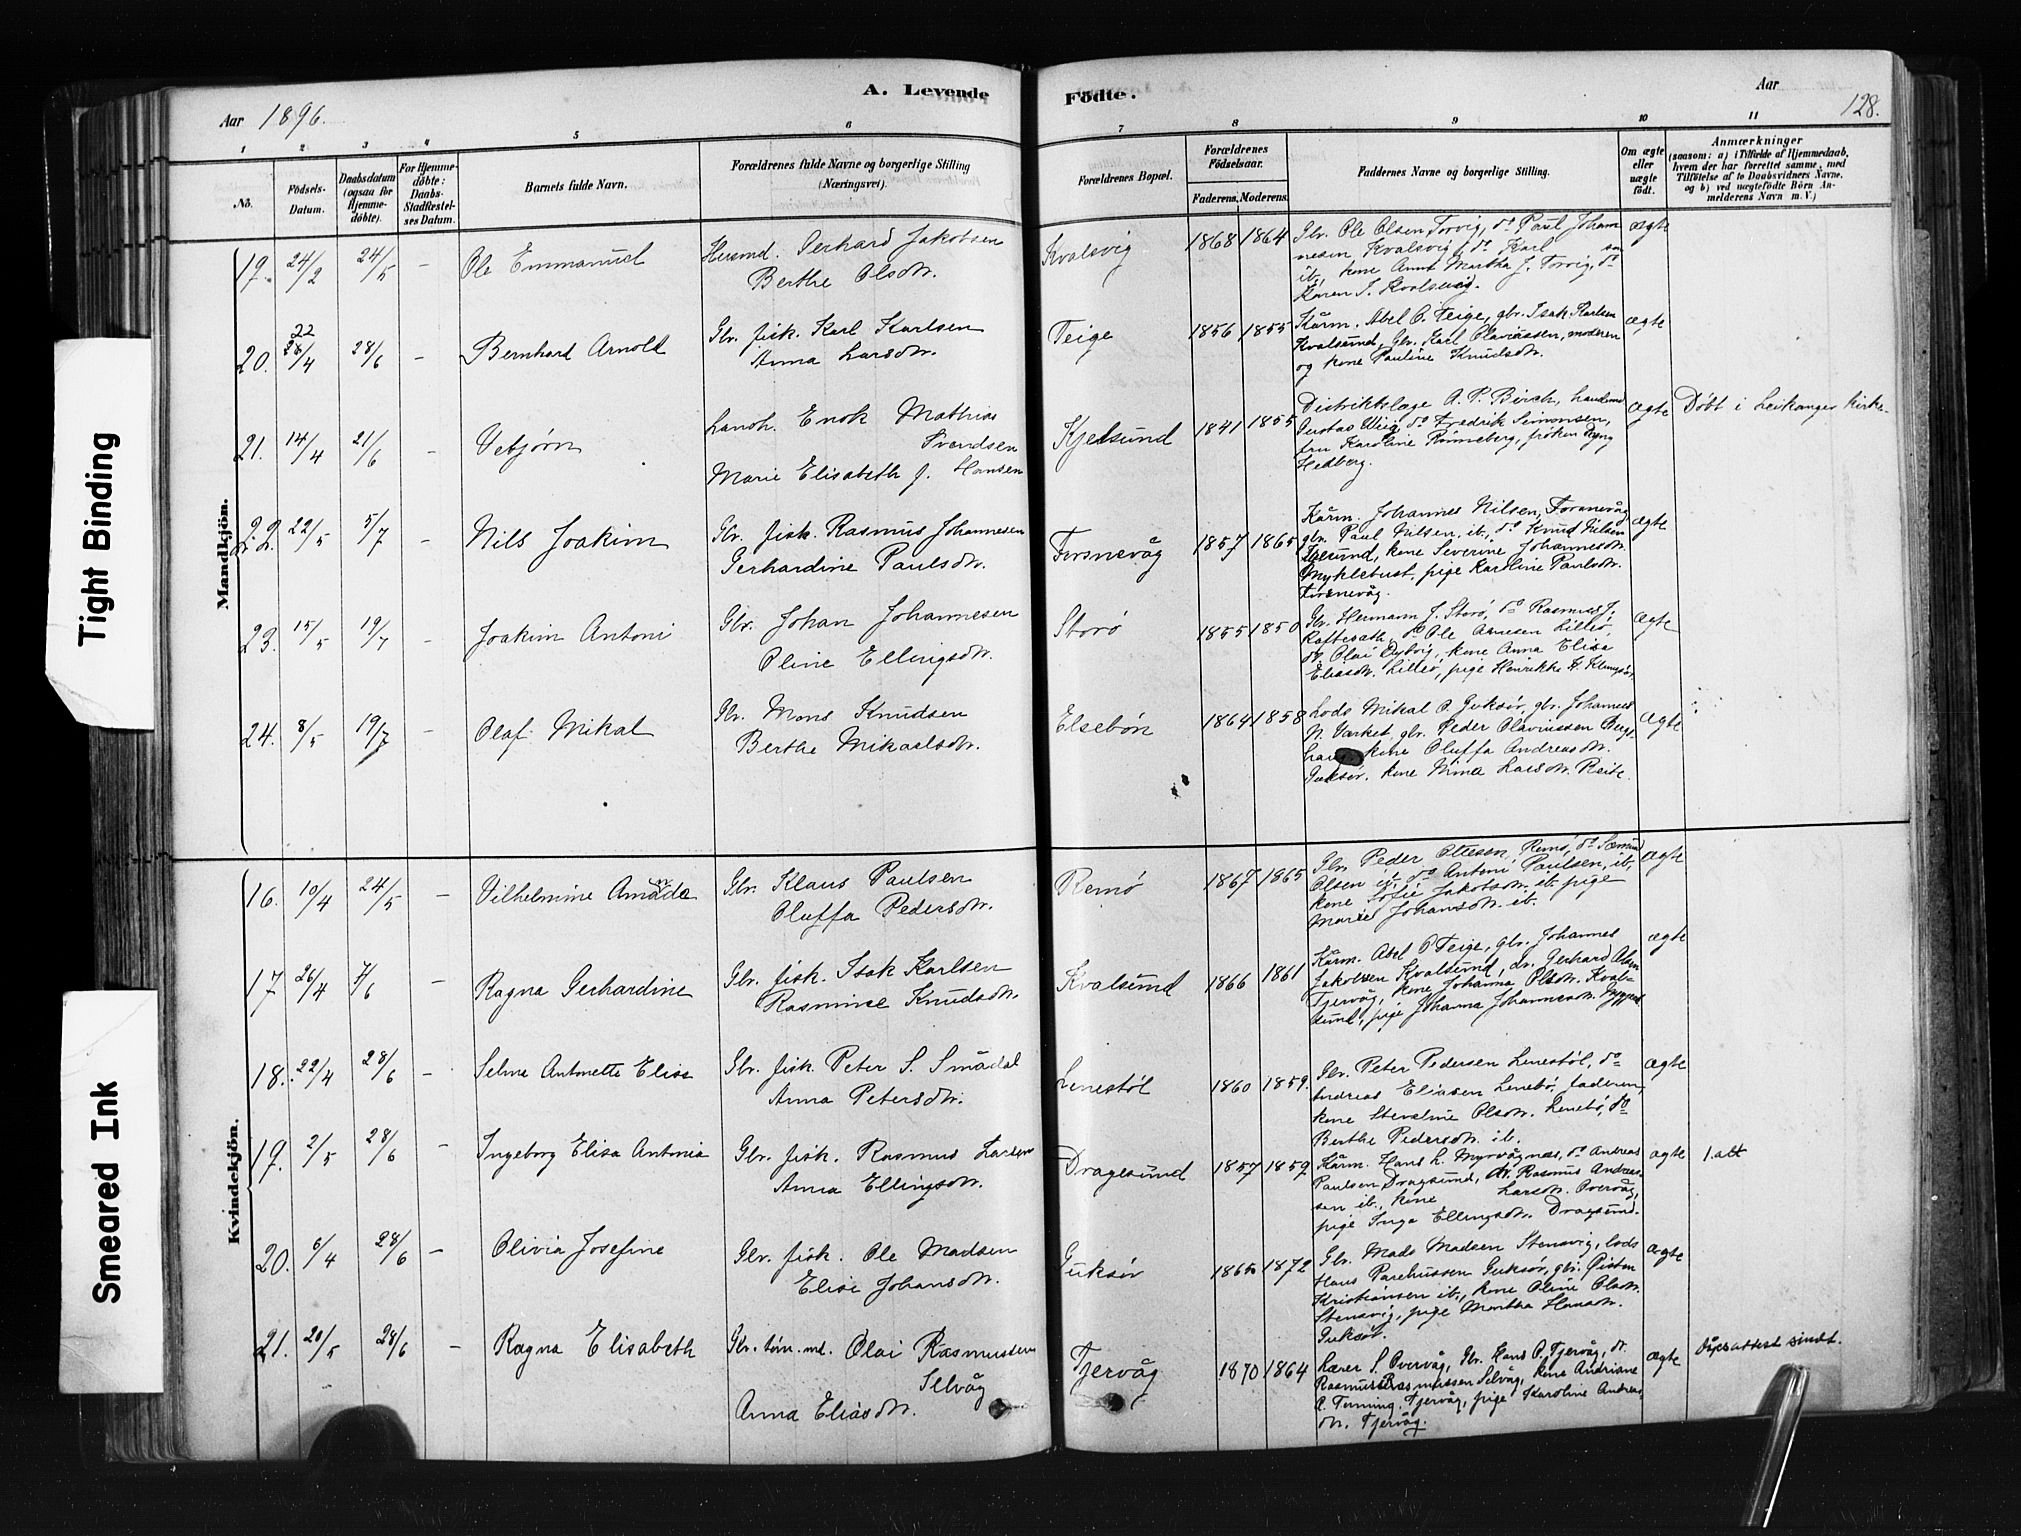 A. Levende
Födte.
Aar 1896.
Aar
128.
1 2 3 4 5 6
7 8 9 10 11
No.
Födsels-
Datum.
Daabsdatum
(ogsaa for
Hjemme-
döbte).
For Hjemme-
döbte:
Daabs-
Stadfæstel-
ses Datum.
Barnets fulde Navn.
Forældrenes fulde Navne og borgerlige Stilling
(Næringsvei).
Forældrenes Bopæl.
Forældrenes
Födselsaar.
Faderens. Moderens.
Faddernes Navne og borgerlige Stilling.
Om ægte
eller
uægte
födt.
Anmærkninger
(saasom: a) i Tilfælde af Hjemmedaab,
hvem der har forrettet samme, med
Tilföielse af to Daabsvidners Navne,
og b) ved uægtefödte Börn An-
melderens Navn m. V.)
Mandkjön.
19. 24/2 24/5 – Ole Emmanuel
Gerhard Jakobsen
Berthe Olsdtr.
Kvalsvig 1868 1864
Gbr. Ole Olsen Torvig, do Paul Johan
nesen Kvalsvig, do Karl
ib, kone Anne Martha J. Torvig, do
Karen J. Kvalsvig.
ægte
20. 22 28/4 28/6 – Bernhard Arnold
Gbr. fisk. Karl Karlsen
Anna Larsdtr.
Teige 1856 1855
Kårm. Abel O. Teige, gbr. Isak Karlsen
Kvalsund, gbr. Karl Olaviussen, moderen
og kone Pauline Knudsdtr.
ægte
21. 14/4 21/6 – Vebjørn
Landh. Enok Mathias
Svendsen
Marie Elisabeth f. Hansen
Kjelsund 1841 1855
Distriktslæge A. P. Birch, handelsm
Gustav Wiig, do Fredrik Simonsen,
fru Karoline Rønneberg, frøken Dyng
Hedberg.
ægte Døbt i Leikanger kirke.
22. 22/5 5/7 – Nils Joakim
Gbr. fisk. Rasmus Johannesen
Gerhardine Paulsdtr.
Torsnevåg 1857 1865
Kårm. Johannes Nilsen, Torsnevåg
gbr. Paul Nilsen, ib., do Knud Nilsen
kone Severine Johannesdtr.
Myklebust, pige Karoline Paulsdtr.
Torsnevåg.
ægte
23. 15/5 19/7 – Joakim Antoni
Gbr. Johan Johannesen
Oline Ellingsdtr.
Storø 1855 1850
Gbr. Hermann J. Storø, do Rasmus J.
Raftesæth, do Ole Arnesen Lillø
dr. Olai Dybvig, kone Anna Elisa
Eliasdtr. Lillø, pige Henrikke H.
ægte
24. 8/5 19/7 – Olaf Mikal
Gbr. Mons Knudsen
Berthe Mikaelsdtr.
Elsebøn 1864 1858
Lods Mikal O. Guksør, gbr. Johannes
N. Værket, gbr. Peder Olavinussen Bergs
haug, kone Oluffa Andreasdtr.
Guksør, kone Mina Larsdtr. Reite.
ægte
Kvindekjön.
16. 10/4 24/5 – Vilhelmine Amanda
Gbr. Klaus Paulsen
Oluffa Pedersdtr.
Remø 1867 1865
Gbr. Peder Ottesen Remø, do Sæmund
Olsen ib, do Antoni Paulsen, ib,
kone Sofie Jakobsdtr. ib. pige
Marie Johansdtr. ib.
ægte
17. 26/4 7/6 – Ragna Gerhardine
Gbr. fisk. Isak Karlsen
Rasmine Knudsdtr.
Kvalsund 1866 1861
Kårm. Abel O Teige, gbr. Johannes
Jakobsen Kvalsund, dr. Gerhard Olsen
Tjervåg, kone Johanna Olsdtr. Kval-
sund, pige Johanna Johannesdtr.
ægte
18. 22/4 28/6 – Selma Antonette Elise
Gbr. fisk. Peter S. Smådal
Anna Petersdtr.
Lenestøl 1860 1859.
Gbr. Peter Pedersen Lenestøl, do
Andreas Eliasen Lenebø, faderen,
kone Stevaline Olsdtr. Lenebø, do
Berthe Pedersdtr. ib.
ægte
19. 2/5 28/6 – Ingeborg Elisa Antonia
Gbr. fisk. Rasmus Larsen
Anna Ellingsdtr.
Dragesund 1857 1859
Kårm. Hans L. Myrvågnes, do Andreas
Paulsen Dragsund, dr. Rasmus Andrea-
sen ib., kone Larsdtr. Overvåg,
pige Inga Ellingsdtr. Dragsund.
ægte 1. att
20. 6/4 28/6 – Olivia Josefine
Gbr. fisk. Ole Madsen
Elise Johansdtr.
Guksør 1865 1872
Gbr. Mads Madsen Stensvig, lods
Hans Guksør, gbr.
Kristiansen ib, kone Oline Olsdtr.
Stensvig, pige Martha Hansdtr.
Guksør.
ægte
21. 20/5 28/6 – Ragna Elisabeth
Gbr. tøm.md. Olai Rasmussen
Selvåg
Anna Eliasdtr.
Tjervåg 1870 1864
Lærer S. Overvåg, Gbr. Hans O. Tjervåg, dr.
Rasmus Rasmussen Selvåg, kone Andriane
Tjervåg, pige Karoline Andreas
dtr. Tjervåg.
ægte Dåbsattest sendt.
Tight Binding
Smeared Ink